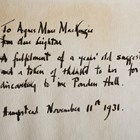 To Agnes Mure Mackenzie
from Clare Leighton
A fulfilment of a years' old suggestion
and a token of thanks to her for
discovering to me Porden Hall.
Hampstead November 11th 1931.